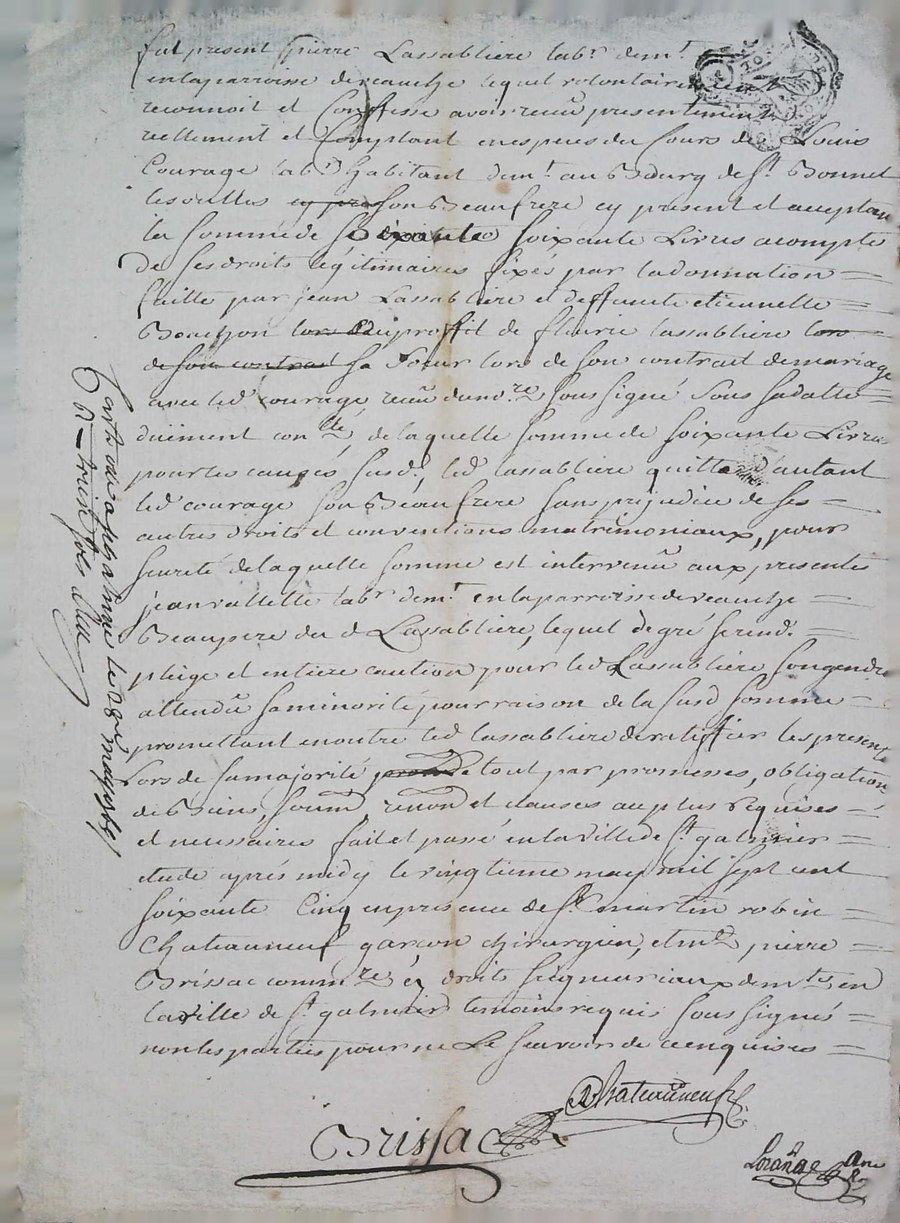 fut present pierre Lassabliere labr demt
en la parroisse de veauche lequel volontairement
reconnoit et Confesse avoir recu presentement
reellement et Comptant en especes du Cours de Louis
Courage labr habitant demt au Bourg de St Bonnet
les oulles cy pre son Beaufrere cy present et acceptant
la somme de soixante soixante Livres acompte
de ses droits légitimaires fixés par la donnation =
faitte par jean Lassabliere et deffunte etiennette =
Bouchon lors du au proffit de fleurie lassabliere lors
de son contrat sa soeur lors de son contrait de mariage
avec led courage recu du nore soussigné sous sa datte =
duement conlé de laquelle somme de soixante Livres
pour les causes susd. led lassabliere quitte d'autant
led courage son Beaufrere sans prejudice de ses =
autres droits et conventions matrimoniaux, pour
seureté de laquelle somme est intervenu aux presentes
jean vallette labr demt en la parroisse de veauche =
Beaupere du d Lassabliere, lequel de gré se rend.
pleige et entiere caution pour led Lassabliere son gendre
attendu sa minorité pour raison de la susd somme =
promettant en outre led lassabliere de ratiffier les presentes
Lors de sa majorité de tout par promesses, obligation
de Biens, soumd renond et clauses au plus requises =
et necessaires fait et passé en la ville de St galmier =
etude après midy le vingtieme may mil sept cent
soixante Cinq en presence de Sr martin robin =
Chateauneuf garçon chirurgien, et mre pierre =
Brissac commre ez droits seigneuriaux demts en
la ville de St galmier temoins requis sous signés =
non les parties pour ne Le scavoir de ce enquises =
RChateauneuf
Brissac
Lorañdre